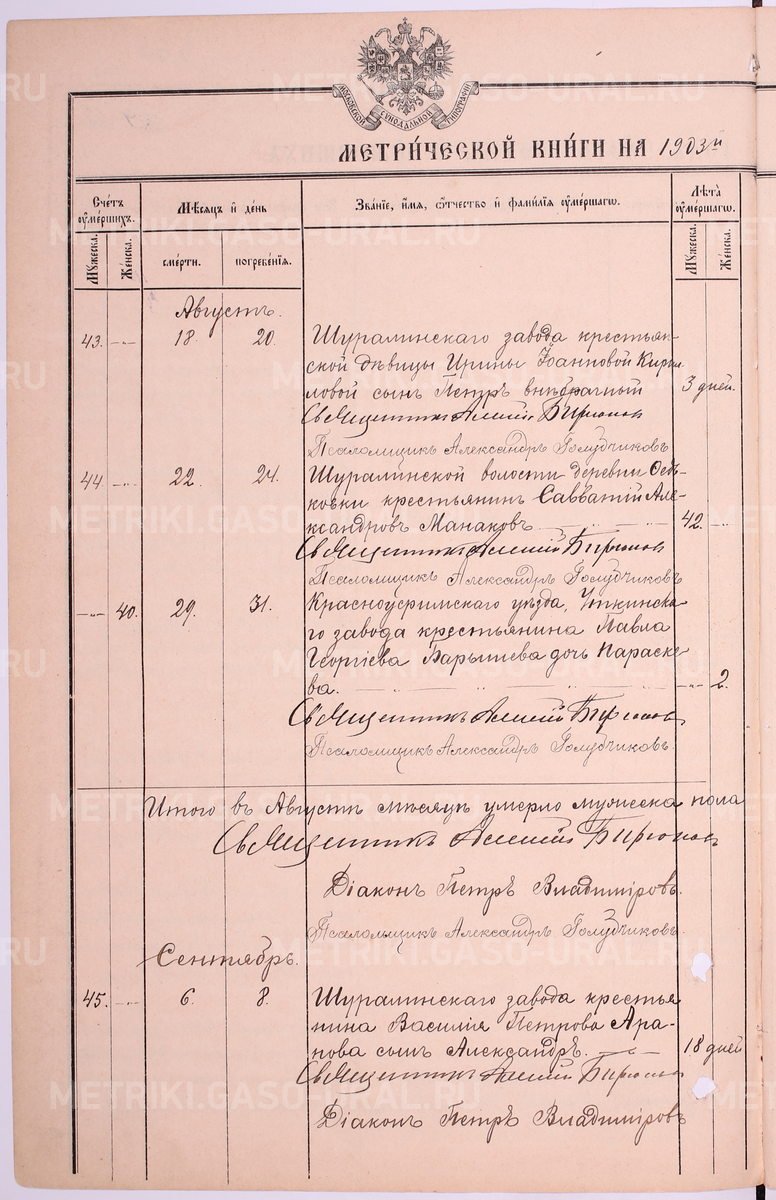 МОСКОВСКОЙ СѴНОДАЛЬНОЙ ТИПОГРАФІИ
МЕТРИ́ЧЕСКОЙ КНИ́ГИ НА 1903й
Сче́тъ ᲂу҆ме́ршихъ.
Мѣ́сяцъ и҆ де́нь
Зва́нїе, и҆́мя, ѻ҆́тчество и҆ фами́лїѧ ᲂу҆ме́ршагѡ.
Лѣ́та ᲂу҆ме́ршагѡ.
Мꙋ́жеска.
Же́нска.
сме́рти.
погребе́нїѧ.
Мꙋ́жеска.
Же́нска.
Августъ.
43. -„- 18. 20. Шуралинскаго завода крестьян-
ской дѣвицы Ирины Іоанновой Кирил
ловой сынъ Петръ внѣбрачный 3 дней.
Священникъ Алексій Бирюковъ
Псаломщикъ Александръ Голубчиковъ
44. -„- 22. 24. Шуралинской волости деревни Осъ-
ковки крестьянинъ Савватій Але-
ксандровъ Манаковъ 42. -„-
Священникъ Алексій Бирюковъ
Псаломщикъ Александръ Голубчиковъ
-„- 40. 29. 31. Красноуфимскаго уѣзда, Уткинска-
го завода крестьянина Павла
Георгіева Барышева дочь Параске-
ва. -„- 2.
Священникъ Алексій Бирюковъ
Псаломщикъ Александръ Голубчиковъ.
Итого въ Августѣ мѣсяцѣ умерло мужеска пола
Священникъ Алексій Бирюковъ
Діаконъ Петръ Владиміровъ.
Псаломщикъ Александръ Голубчиковъ.
Сентябрь.
45. -„- 6. 8. Шуралинскаго завода крестья
нина Василія Петрова Ара-
пова сынъ Александръ. 18 дней
Священникъ Алексій Бирюковъ
Діаконъ Петръ Владиміровъ
METRIKI.GASO-URAL.RU